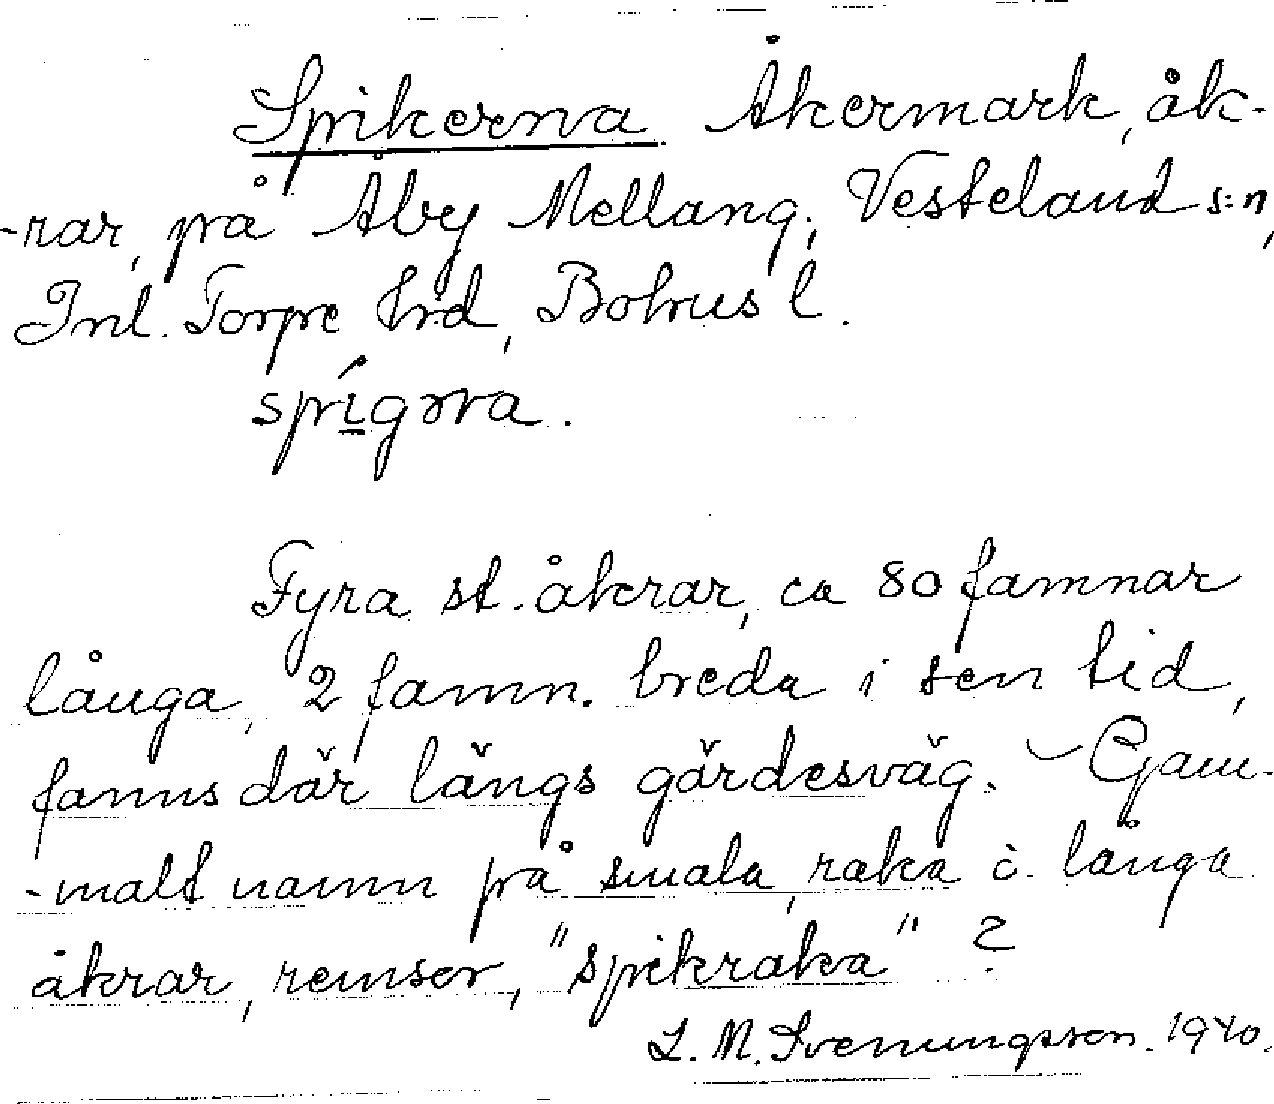 Spikerna Åkermark, åk-
-rar, på Åby Mellang., Vesteland s:n,
Inl. Torpe hrd, Bohus l.
spi̲gǝrna.
Fyra st. åkrar, ca 80 famnar
långa, 2 famn. breda i sen tid,
fanns där längs gärdesväg. – Gam-
-malt namn på smala, raka o. långa
åkrar, remsor, "spikraka" ?
L. M. Svenungsson. 1940.